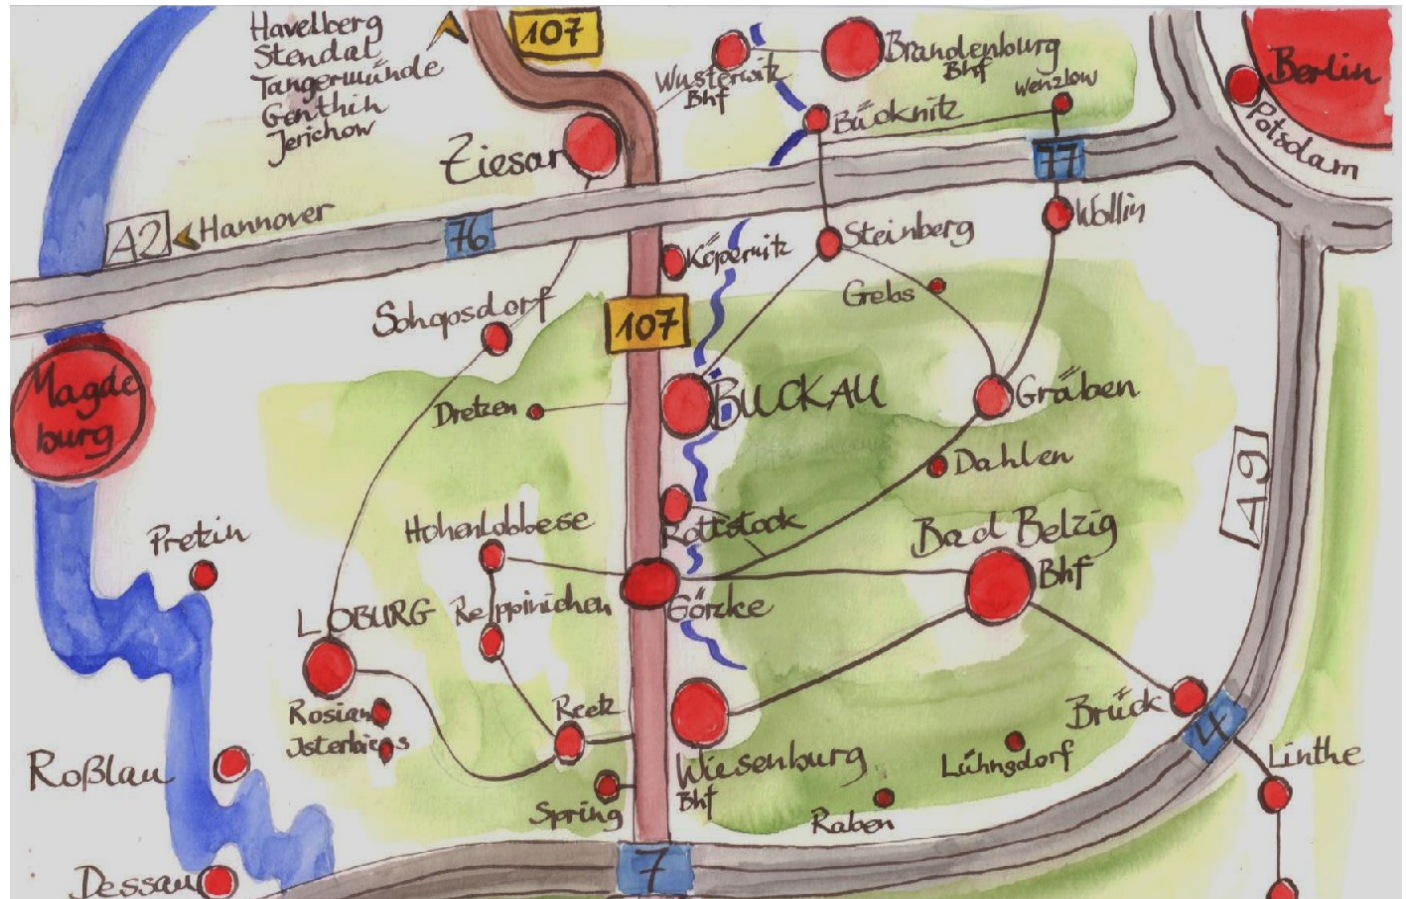 Havelberg
Stendal
Tangermünde
Genthin
Jerichow
107
Wusterwitz
Bhf
Brandenburg
Bhf
Wenzlow
Bücknitz
Berlin
Potsdam
Ziesar
77
A2
Hannover
76
Wollin
Steinberg
Köpernitz
Grebs
Schopsdorf
107
Magde
burg
Dretzen
BUCKAU
Gräben
Dahlen
A9
Pretzin
Hohenlobbese
Rottstock
Bad Belzig
Bhf
LOBURG
Reppinichen
Görzke
Rosian
Isterbies
Reetz
Brück
4
Roßlau
Wiesenburg
Bhf
Lühnsdorf
Linthe
Spring
Raben
Dessau
7